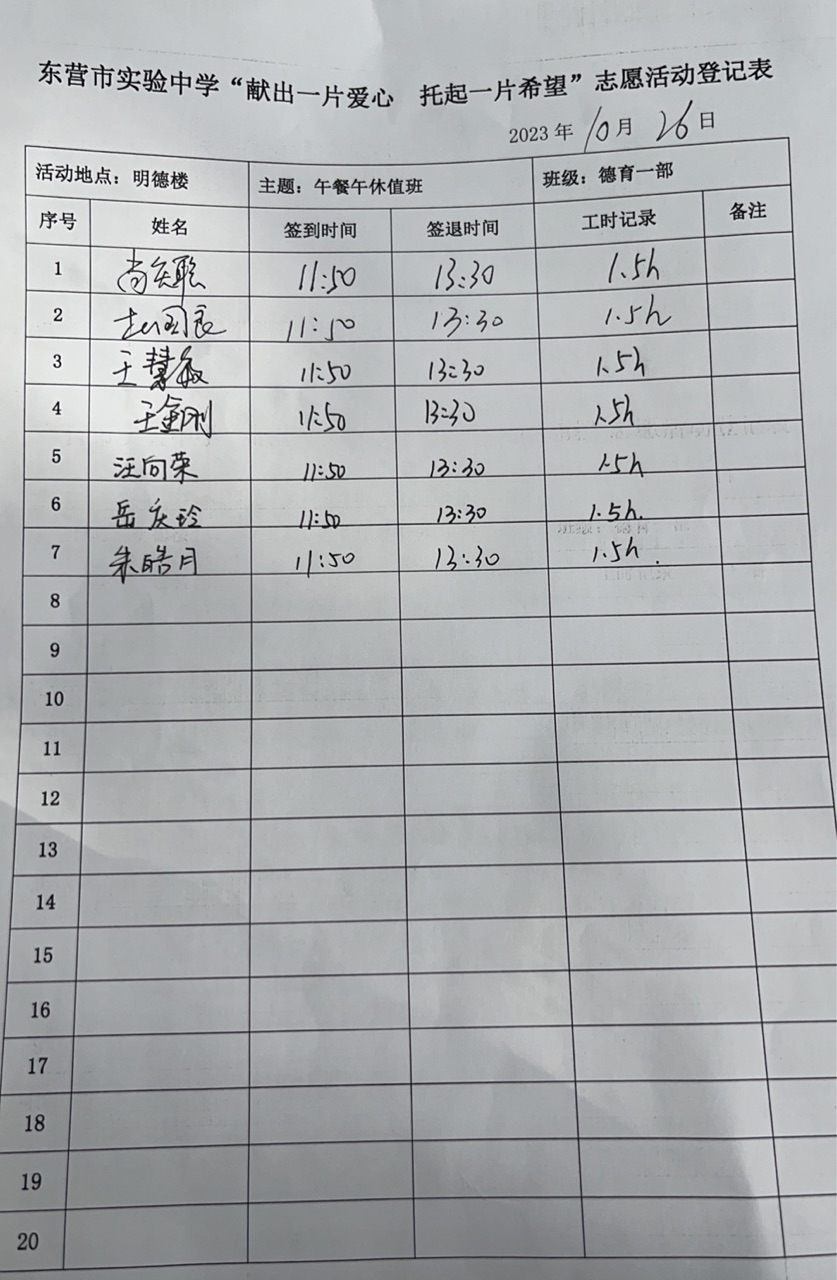 东营市实验中学“献出一片爱心 托起一片希望”志愿活动登记表
2023年 10月 26日
活动地点：明德楼 主题：午餐午休值班 班级：德育一部
序号 姓名 签到时间 签退时间 工时记录 备注
1 11:50 13:30 1.5h
2 11:50 13:30 1.5h
3 王慧敏 11:50 13:30 1.5h
4 王金刚 11:50 13:30 1.5h
5 汪向荣 11:50 13:30 1.5h
6 岳庆玲 11:50 13:30 1.5h.
7 朱皓月 11:50 13:30 1.5h.
8
9
10
11
12
13
14
15
16
17
18
19
20